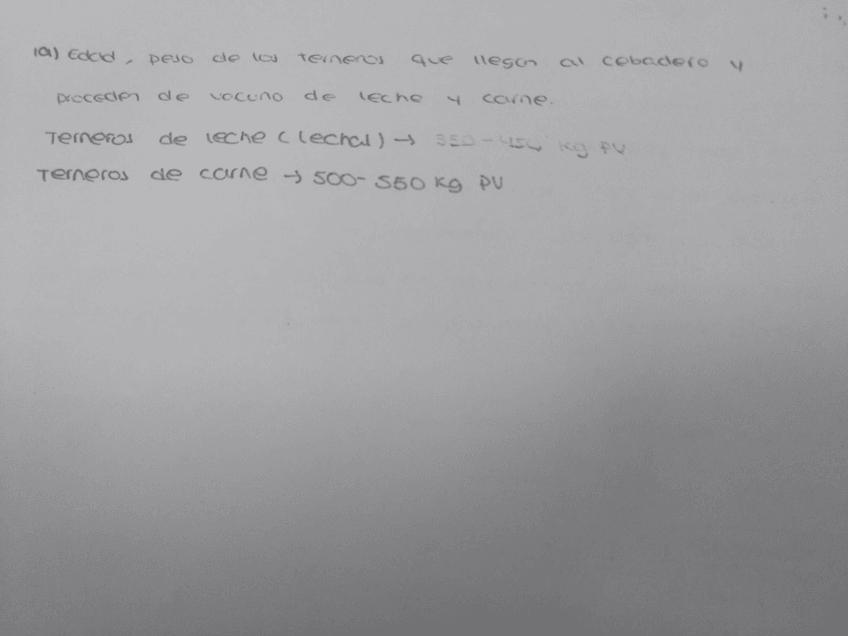 1a) Edad, peso de los terneros que llegan al cebadero y
proceden de vacuno de leche y carne.
Terneros de leche (lechal) → kg PV
Terneros de carne → 500-550 kg PV